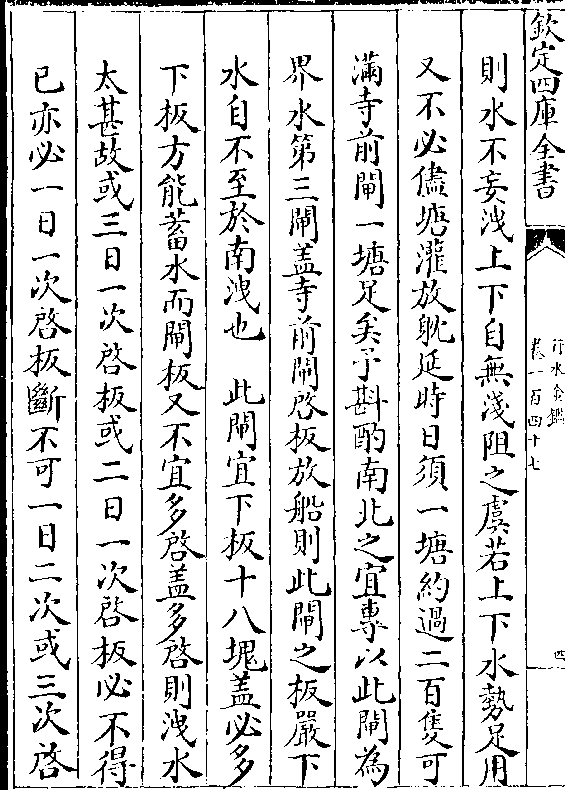 欽定四庫全書
行水金鑑
卷一百四十七
四
則水不妄洩上下自無淺阻之虞若上下水勢足用
又不必儘塘灌放躭延時日須一塘約過二百隻可
滿寺前閘一塘足矣予斟酌南北之宜專以此閘為
界水第三閘盖寺前閘啓板放船則此閘之板嚴下
水自不至於南洩也　此閘宜下板十八塊盖必多
下板方能蓄水而閘板又不宜多啓盖多啓則洩水
太甚故或三日一次啓板或二日一次啓板必不得
已亦必一日一次啓板斷不可一日二次或三次啓